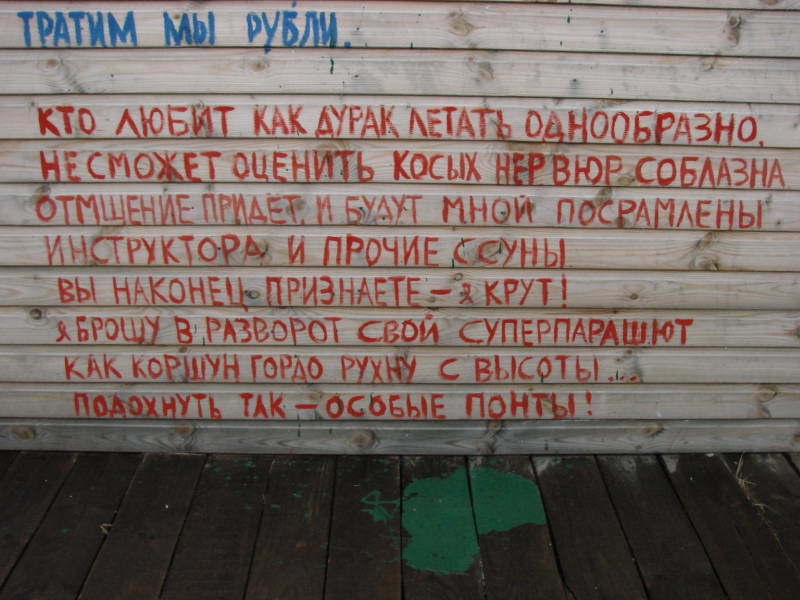 ТРАТИМ МЫ РУБЛИ.
КТО ЛЮБИТ КАК ДУРАК ЛЕТАТЬ ОДНООБРАЗНО,
НЕ СМОЖЕТ ОЦЕНИТЬ КОСЫХ НЕРВЮР СОБЛАЗНА.
ОТМЩЕНИЕ ПРИДЁТ И БУДУТ МНОЙ ПОСРАМЛЕНЫ
ИНСТРУКТОРА И ПРОЧИЕ ССУНЫ
ВЫ НАКОНЕЦ ПРИЗНАЕТЕ – Я КРУТ!
Я БРОШУ В РАЗВОРОТ СВОЙ СУПЕРПАРАШЮТ
КАК КОРШУН ГОРДО РУХНУ С ВЫСОТЫ...
ПОДОХНУТЬ ТАК – ОСОБЫЕ ПОНТЫ!